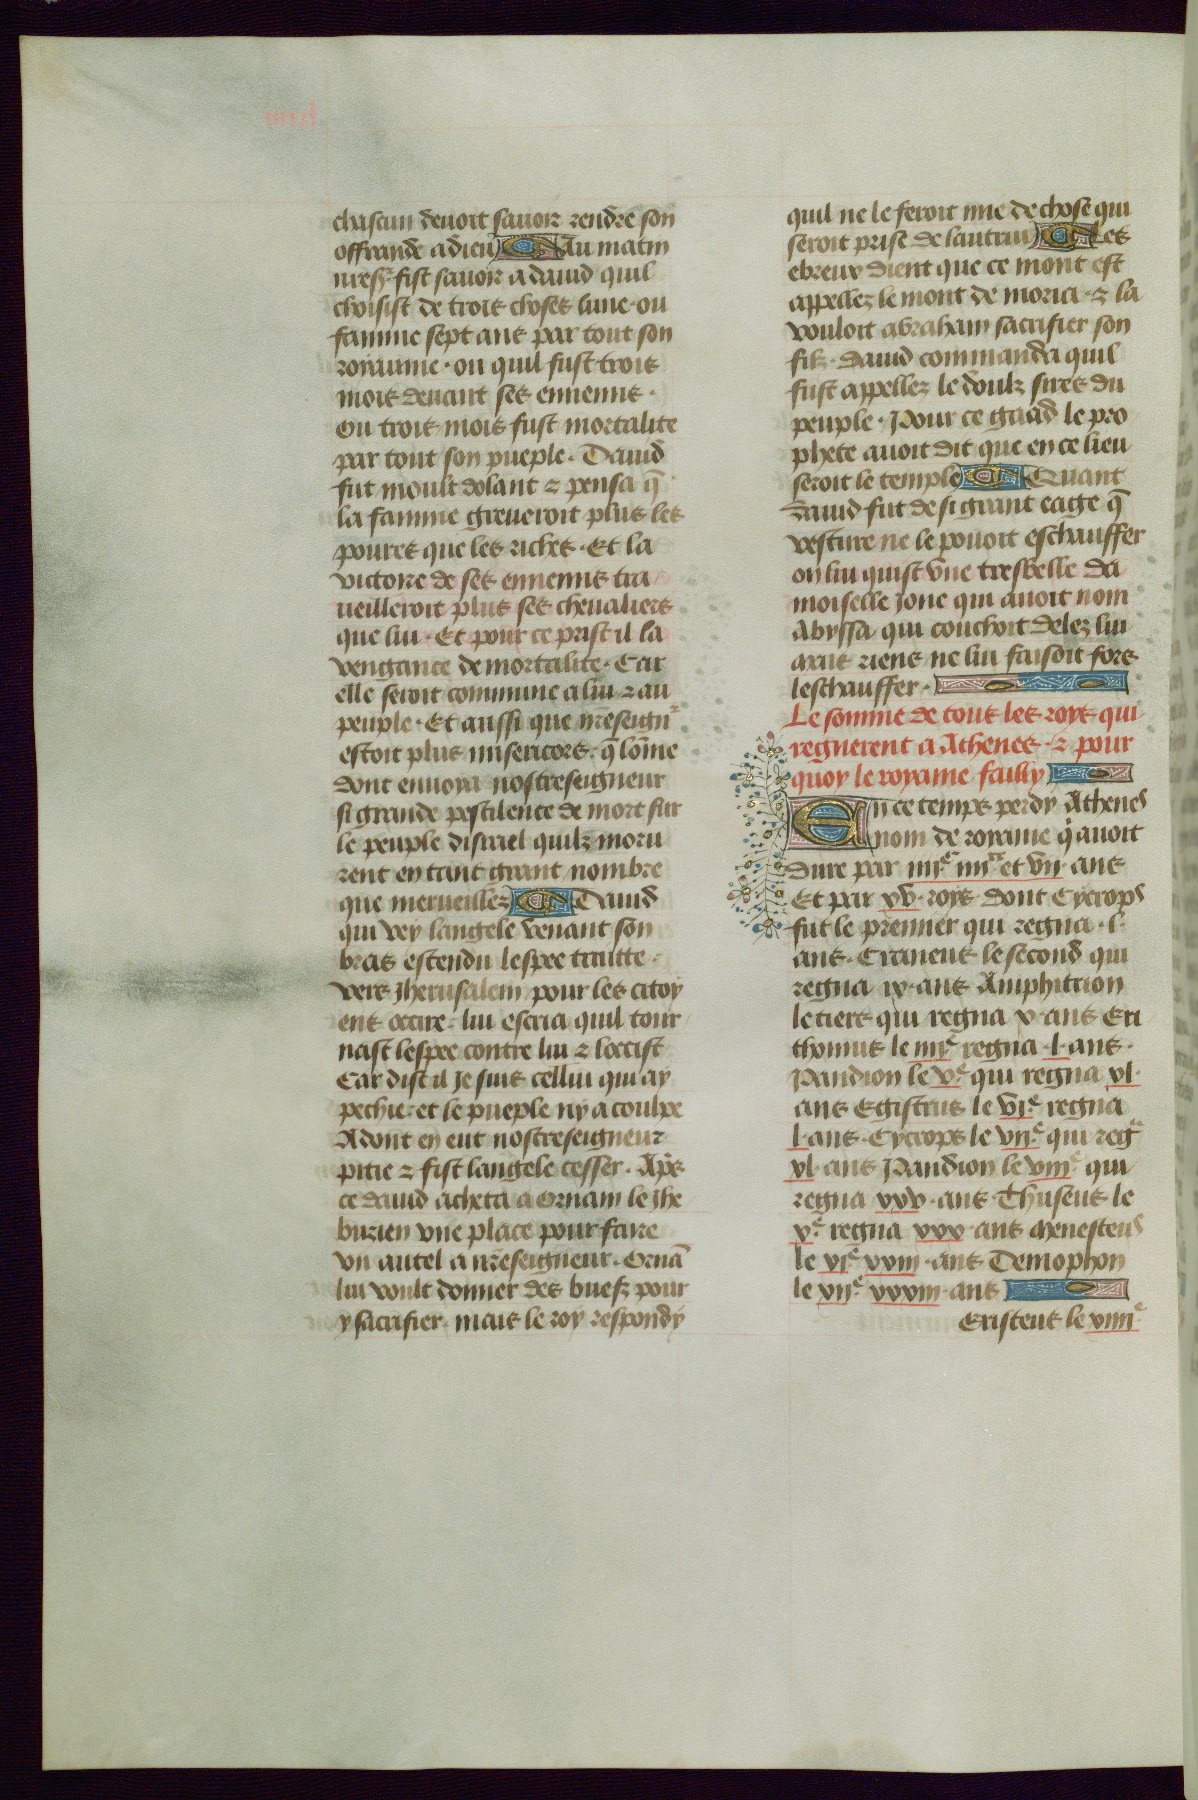 chascun deuoit sauoir rendre son
offrande a dieu Au matin
nr̄es fist sauoir a dauid quil
choisist de trois choses lune · ou
famine sept ans par tout son
royaume · ou quil fust trois
mois deuant ses ennemis ·
Ou trois mois fust mortalite
par tout son pueple · Dauid
fut moult dolant ⁊ pensa q̄
la famine greueroit plus les
poures que les riches · Et la
victoire de ses ennemis tra
ueilleroit plus ses cheualiers
que lui · Et pour ce prist il la
vengance de mortalite · Car
elle seroit commune a lui ⁊ au
peuple · Et aussi que nr̄eseignr
estoit plus misericors · q̄ lōme
dont enuoya nostreseigneur
si grande pestilence de mort sur
le peuple disrael quilz moru
rent en tant grant nombre
que merueillez Dauid
qui vey langele venant son
bras estendu lespee traitte ·
vers jherusalem pour les citoy
ens occire · lui escria quil tour
nast lespee contre lui ⁊ loccist
Car dist il Je suis cellui qui ay
pechie · et le pueple ny a coulpe
Adont en eut nostreseigneur
pitie ⁊ fist langele cesser · Aps̄
ce dauid acheta a Ornam le jhe
buzien vne place pour faire
vn autel a nr̄eseigneur · Ornā
lui voult donner des buefz pour
y sacrifier · mais le roy respondy
quil ne le feroit mie de chose qui
seroit prise de lautrui Les
ebreux dient que ce mont est
appellez le mont de moria · ⁊ la
vouloit abraham sacrifier son
filz · dauid commanda quil
fust appellez le doulz sires du
peuple · Pour ce gaad le pro
phete auoit dit que en ce lieu
seroit le temple Quant
dauid fut de si grant eage q̄
vesture ne le pouoit eschauffer
on lui quist vne tresbelle da
moiselle jone qui auoit nom
Abyssa qui couchoit delez lui
mais riens ne lui faisoit fors
leschauffer ·
Le somme de tous les roys qui
regnerent a Athenes · ⁊ pour
quoy le royame failly
En ce temps perdy Athenes
nom de royame q̄ auoit
dure par iiijc iiijxx et vij · ans
Et par xv · roys dont Cycrops
fut le premier qui regna · l ·
ans · Craneus le second qui
regna ix · ans Amphitrion
le tiers qui regna x · ans Eri
thonius le iiije regna · l · ans ·
Pandion le ve qui regna xl ·
ans Egistrus le vie regna
l · ans · Cycrops le viie qui regna
xl · ans Pandion le viije qui
regna xxv · ans Thuseus le
xe regna xxx · ans Menesteus
le xie xxiij · ans Demophon
le xije xxxiij · ans
Eristeus le xiiije